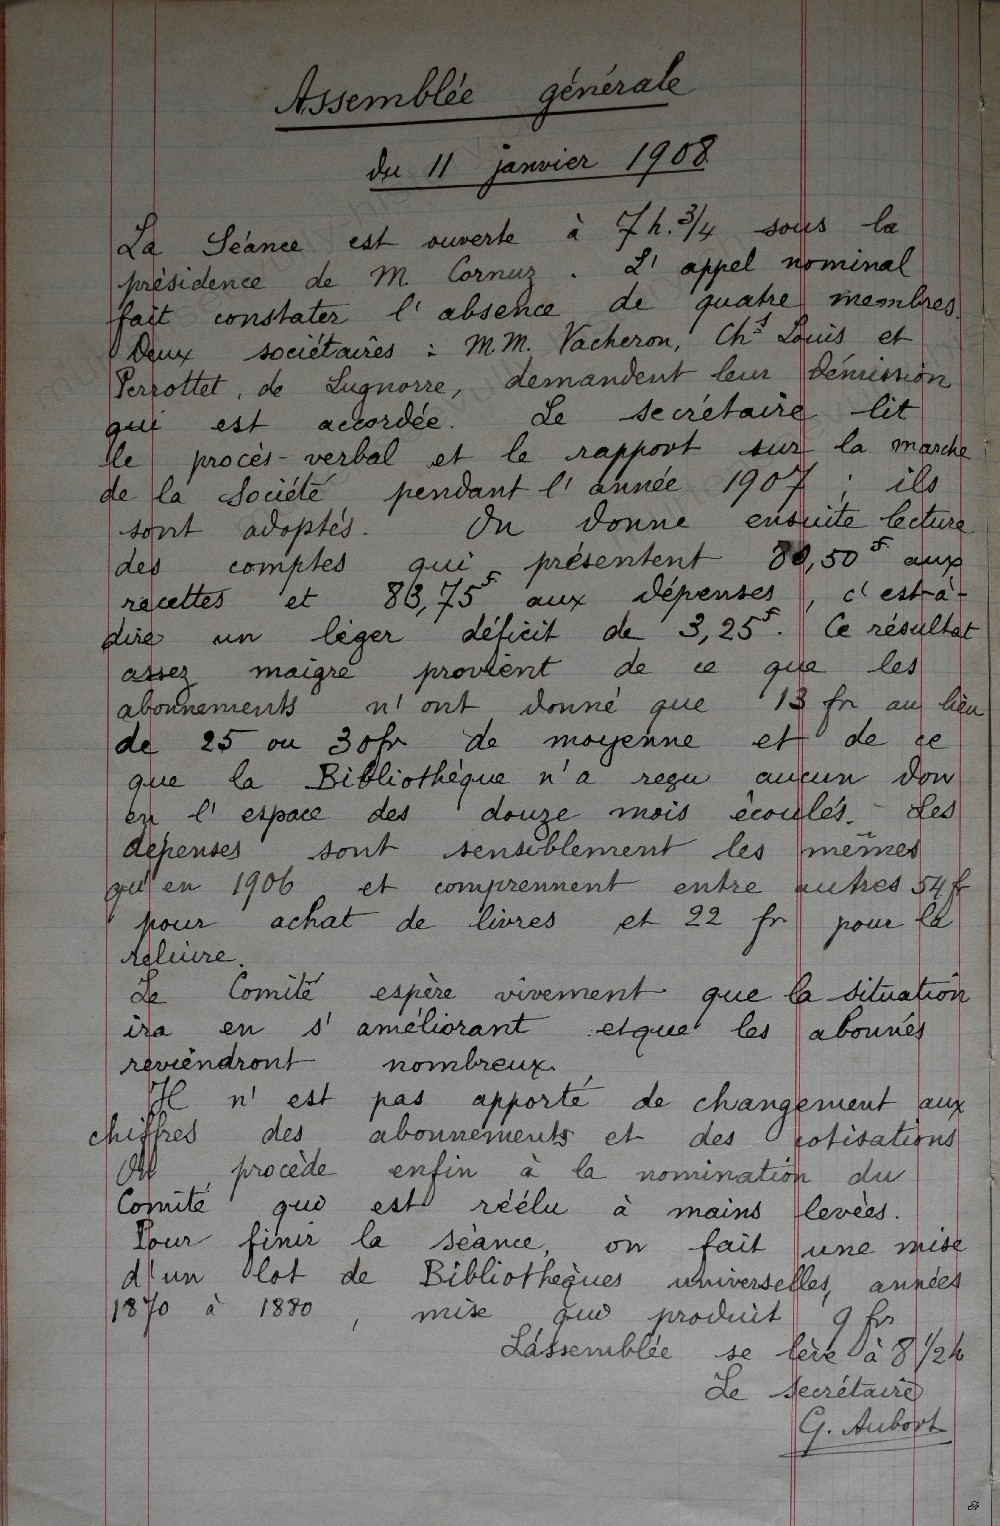 Assemblée générale
du 11 janvier 1908
La Séance est ouverte à 7 h. 3/4 sous la
présidence de M. Cornuz. L'appel nominal
fait constater l'absence de quatre membres.
Deux sociétaires : M.M. Vacheron, Chs Louis et
Perrottet, de Lugnorre, demandent leur démission
qui est accordée. Le secrétaire lit
le procès-verbal et le rapport sur la marche
de la Société pendant l'année 1907 ; ils
sont adoptés. On donne ensuite lecture
des comptes qui présentent 80,50 f aux
recettes et 83,75 f aux dépenses, c'est-à-
dire un léger déficit de 3,25 f. Ce résultat
assez maigre provient de ce que les
abonnements n'ont donné que 13 fr au lieu
de 25 ou 30 fr de moyenne et de ce
que la Bibliothèque n'a reçu aucun don
en l'espace des douze mois écoulés. Les
dépenses sont sensiblement les mêmes
qu'en 1906 et comprennent entre autres 54 fr
pour achat de livres et 22 fr pour la
reliure.
Le Comité espère vivement que la situation
ira en s'améliorant et que les abonnés
reviendront nombreux.
Il n'est pas apporté de changement aux
chiffres des abonnements et des cotisations
On procède enfin à la nomination du
Comité qui est réélu à mains levées.
Pour finir la séance, on fait une mise
d'un lot de Bibliothèques universelles, années
1870 à 1880, mise qui produit 9 fr
L'assemblée se lève à 8 1/2 h
Le secrétaire
G. Aubort